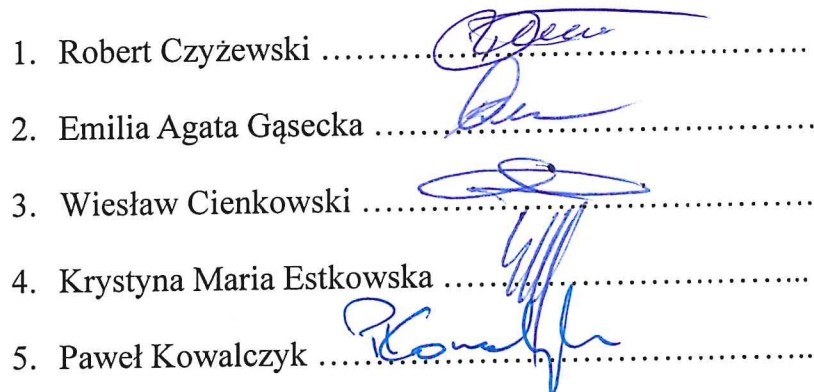 1. Robert Czyżewski ..........................................
2. Emilia Agata Gąsecka ..........................................
3. Wiesław Cienkowski ..........................................
4. Krystyna Maria Estkowska ..........................................
5. Paweł Kowalczyk ..........................................